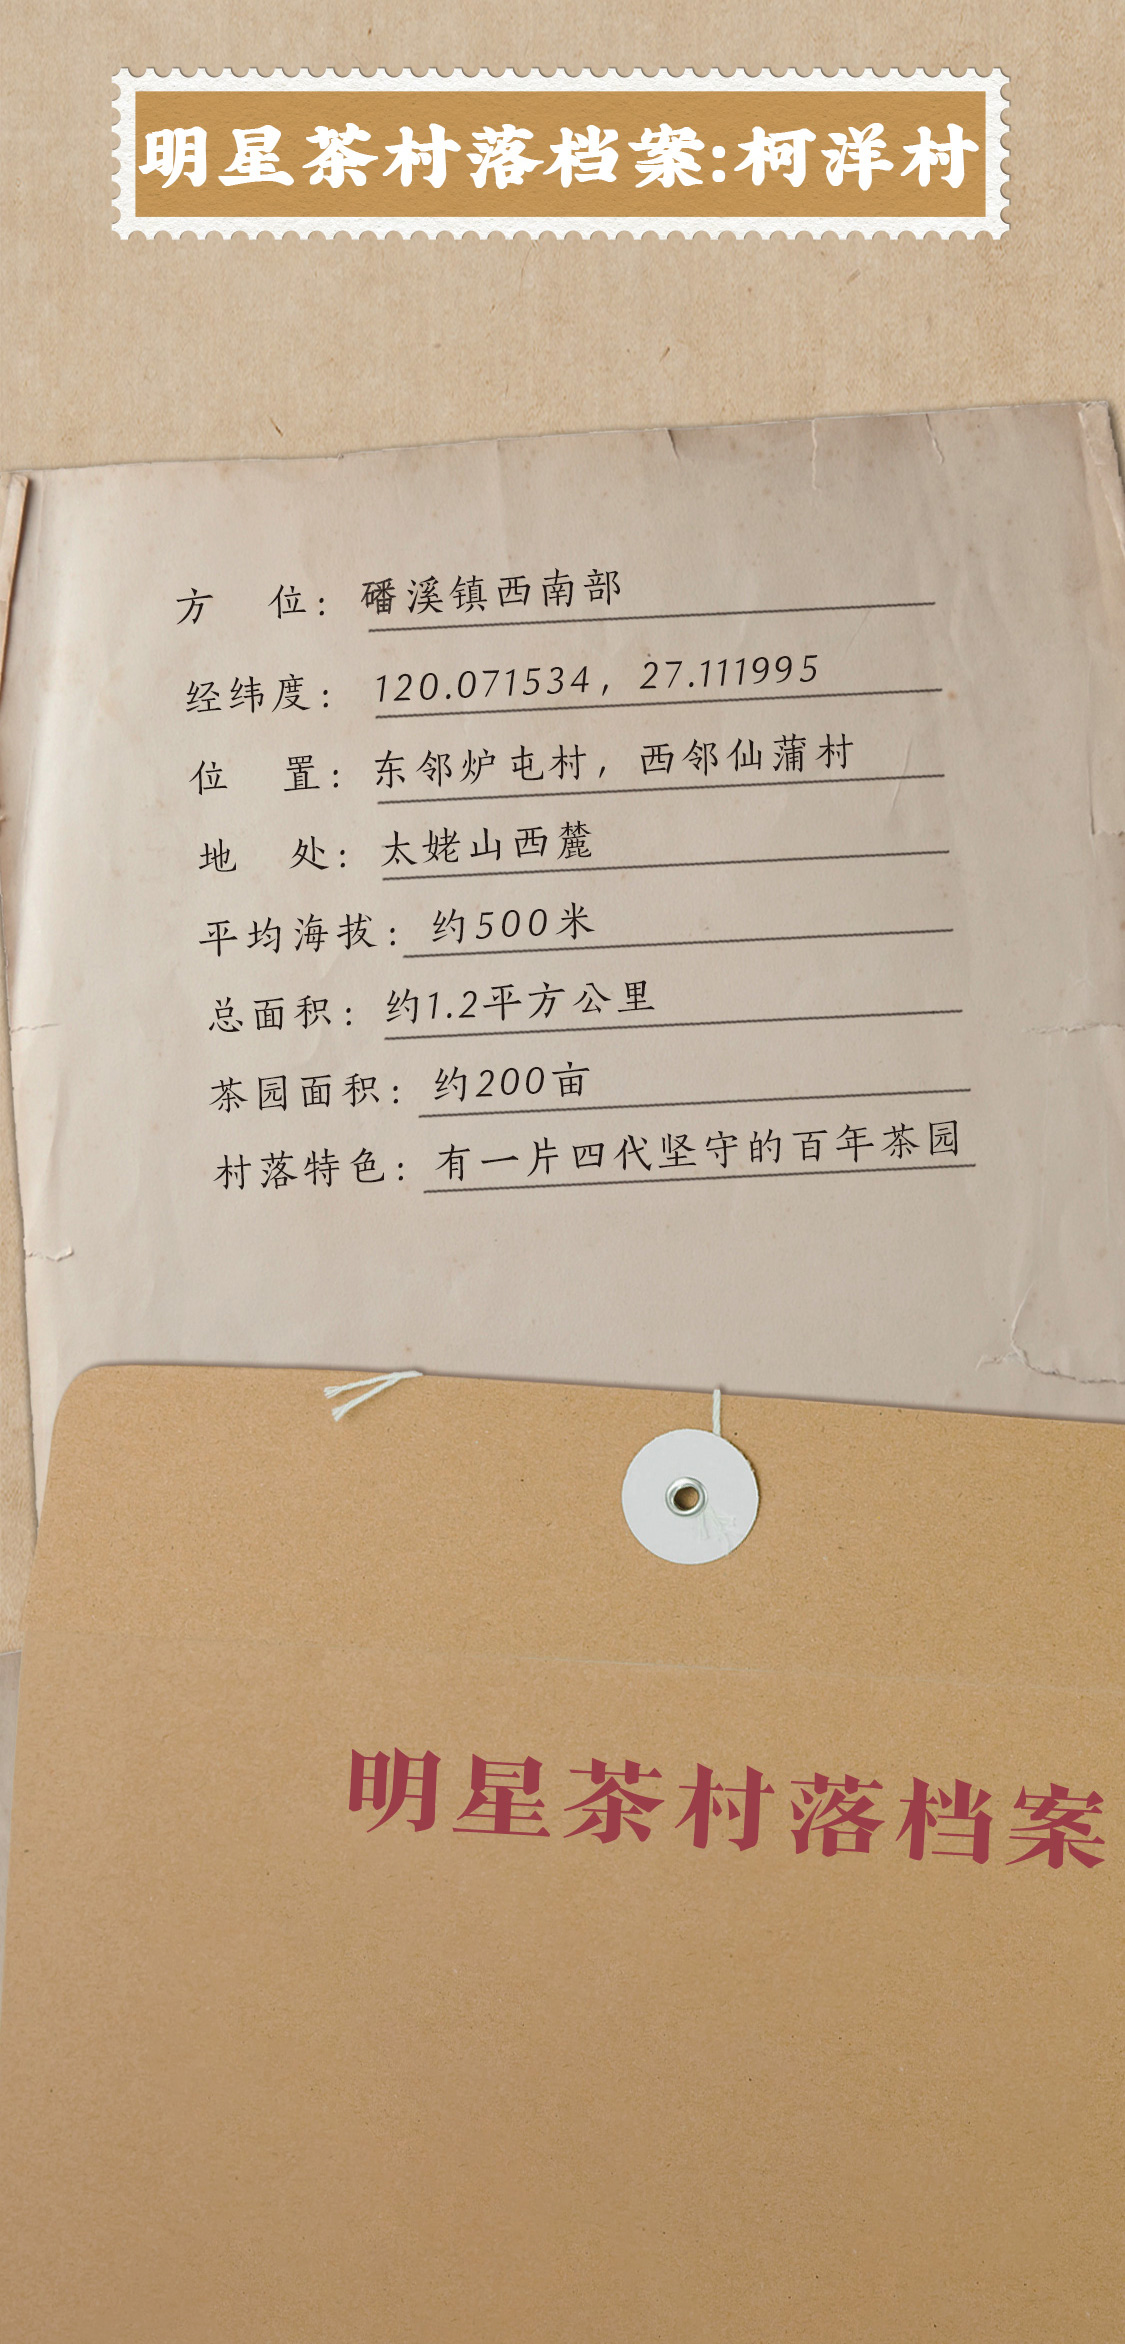 明星茶村落档案:柯洋村
方 位：磻溪镇西南部
经纬度：120.071534，27.111995
位 置：东邻炉屯村，西邻仙蒲村
地 处：太姥山西麓
平均海拔：约500米
总面积：约1.2平方公里
茶园面积：约200亩
村落特色：有一片四代坚守的百年茶园
明星茶村落档案